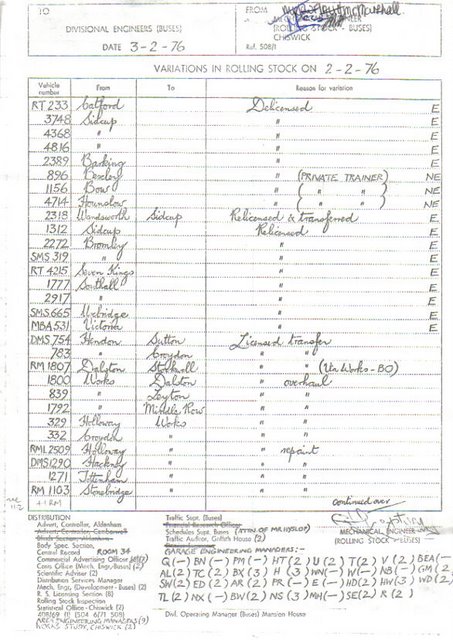 10
FROM
DIVISIONAL ENGINEERS (BUSES)
(ROLLING STOCK - BUSES)
CHISWICK
DATE 3-2-76
Ref. 508/1
VARIATIONS IN ROLLING STOCK ON 2-2-76
Vehicle number From To Reason for variation
RT 233 Catford Delicensed E
3748 Sidcup " E
4368 " " E
4816 " " E
2389 Barking " E
896 Bexley " (PRIVATE TRAINER) NE
1156 Bow " ( " " ) NE
4714 Hounslow " ( " " ) NE
2318 Wandsworth Sidcup Relicensed & transferred E
1312 Sidcup Relicensed E
2272 Bromley " E
SMS 319 " " E
RT 4215 Seven Kings " E
1777 Southall " E
2917 " " E
SMS 665 Uxbridge " E
MBA 531 Victoria " E
DMS 754 Hendon Sutton Licensed transfer
783 " Croydon " "
RM 1807 Dalston Stockwell " " (Un Works-BO)
1800 Works Dalston " overhaul
839 " Leyton " "
1792 " Middle Row " "
329 Holloway Works " "
332 Croydon " " "
RML 2509 Holloway " " repaint
DMS 1290 Hackney " " "
1271 Tottenham " " "
RM 1103 Stonebridge " " "
continued over
DISTRIBUTION
Advert. Controller, Aldenham
Body Spec. Section,
Central Record ROOM 34
Commercial Advertising Officer
Costs Officer (Mech. Engr. Buses) (2)
Scientific Adviser (2)
Distribution Services Manager
Mech. Engr. (Development - Buses) (2)
R. S. Licensing Section (8)
Rolling Stock Inspection
Statistical Office - Chiswick (2)
AREA ENGINEERING MANAGERS (9)
WORKS STUDY, CHISWICK (2)
Traffic Supt. (Buses)
Financial Research Officer
Schedules Supt. (Buses) (ATTN OF MR HYSLOP)
Traffic Auditor, Griffith House (2)
MECHANICAL ENGINEER
(ROLLING STOCK - BUSES)
GARAGE ENGINEERING MANAGERS:-
Q(-) BN(-) PM(-) HT(2) U(2) T(2) V(2) BEA(-)
AL(2) TC(2) BX(3) H(3) WN(-) W(-) NB(-) GM(2)
SW(2) ED(2) AR(2) PR(-) E(-) HD(2) HW(3) WD(2)
TL(2) NX(-) BW(2) NS(3) MH(-) SE(2) R(2)
Divl. Operating Manager (Buses) Mansion House